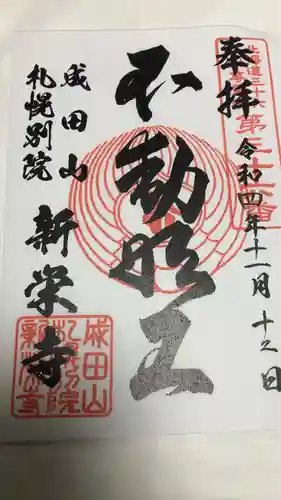 奉拝
北海道三十六
第三十二番
令和四年十一月十六日
不動明王
成田山
札幌別院
新栄寺
成田山
札幌別院
新栄寺